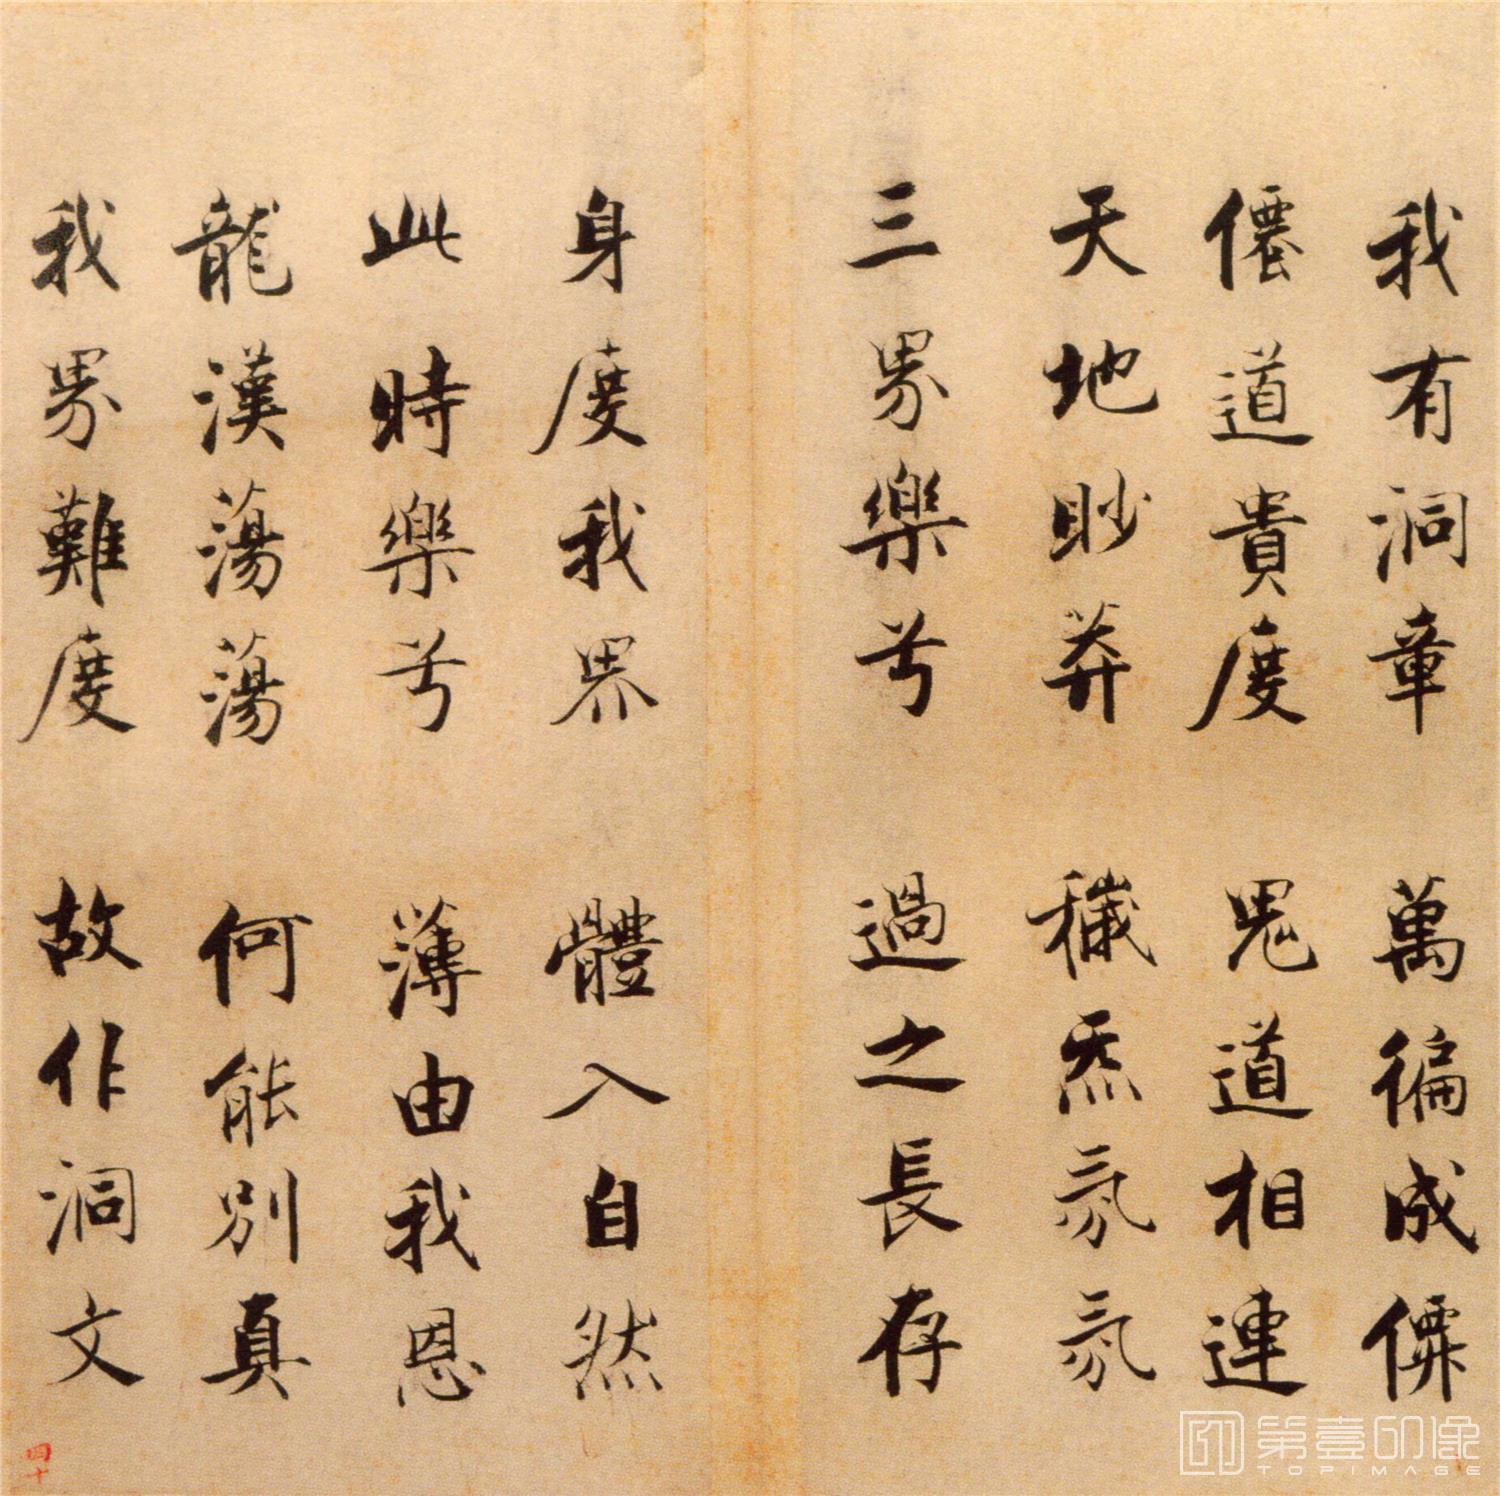 我有洞章 萬徧成仙
僊道貴度 鬼道相連
天地眇莽 穢炁氛氛
三界樂兮 過之長存
身度我界 體入自然
此時樂兮 薄由我恩
龍漢蕩蕩 何能別真
我界難度 故作洞文
四十
第壹印像
TOPIMAGE